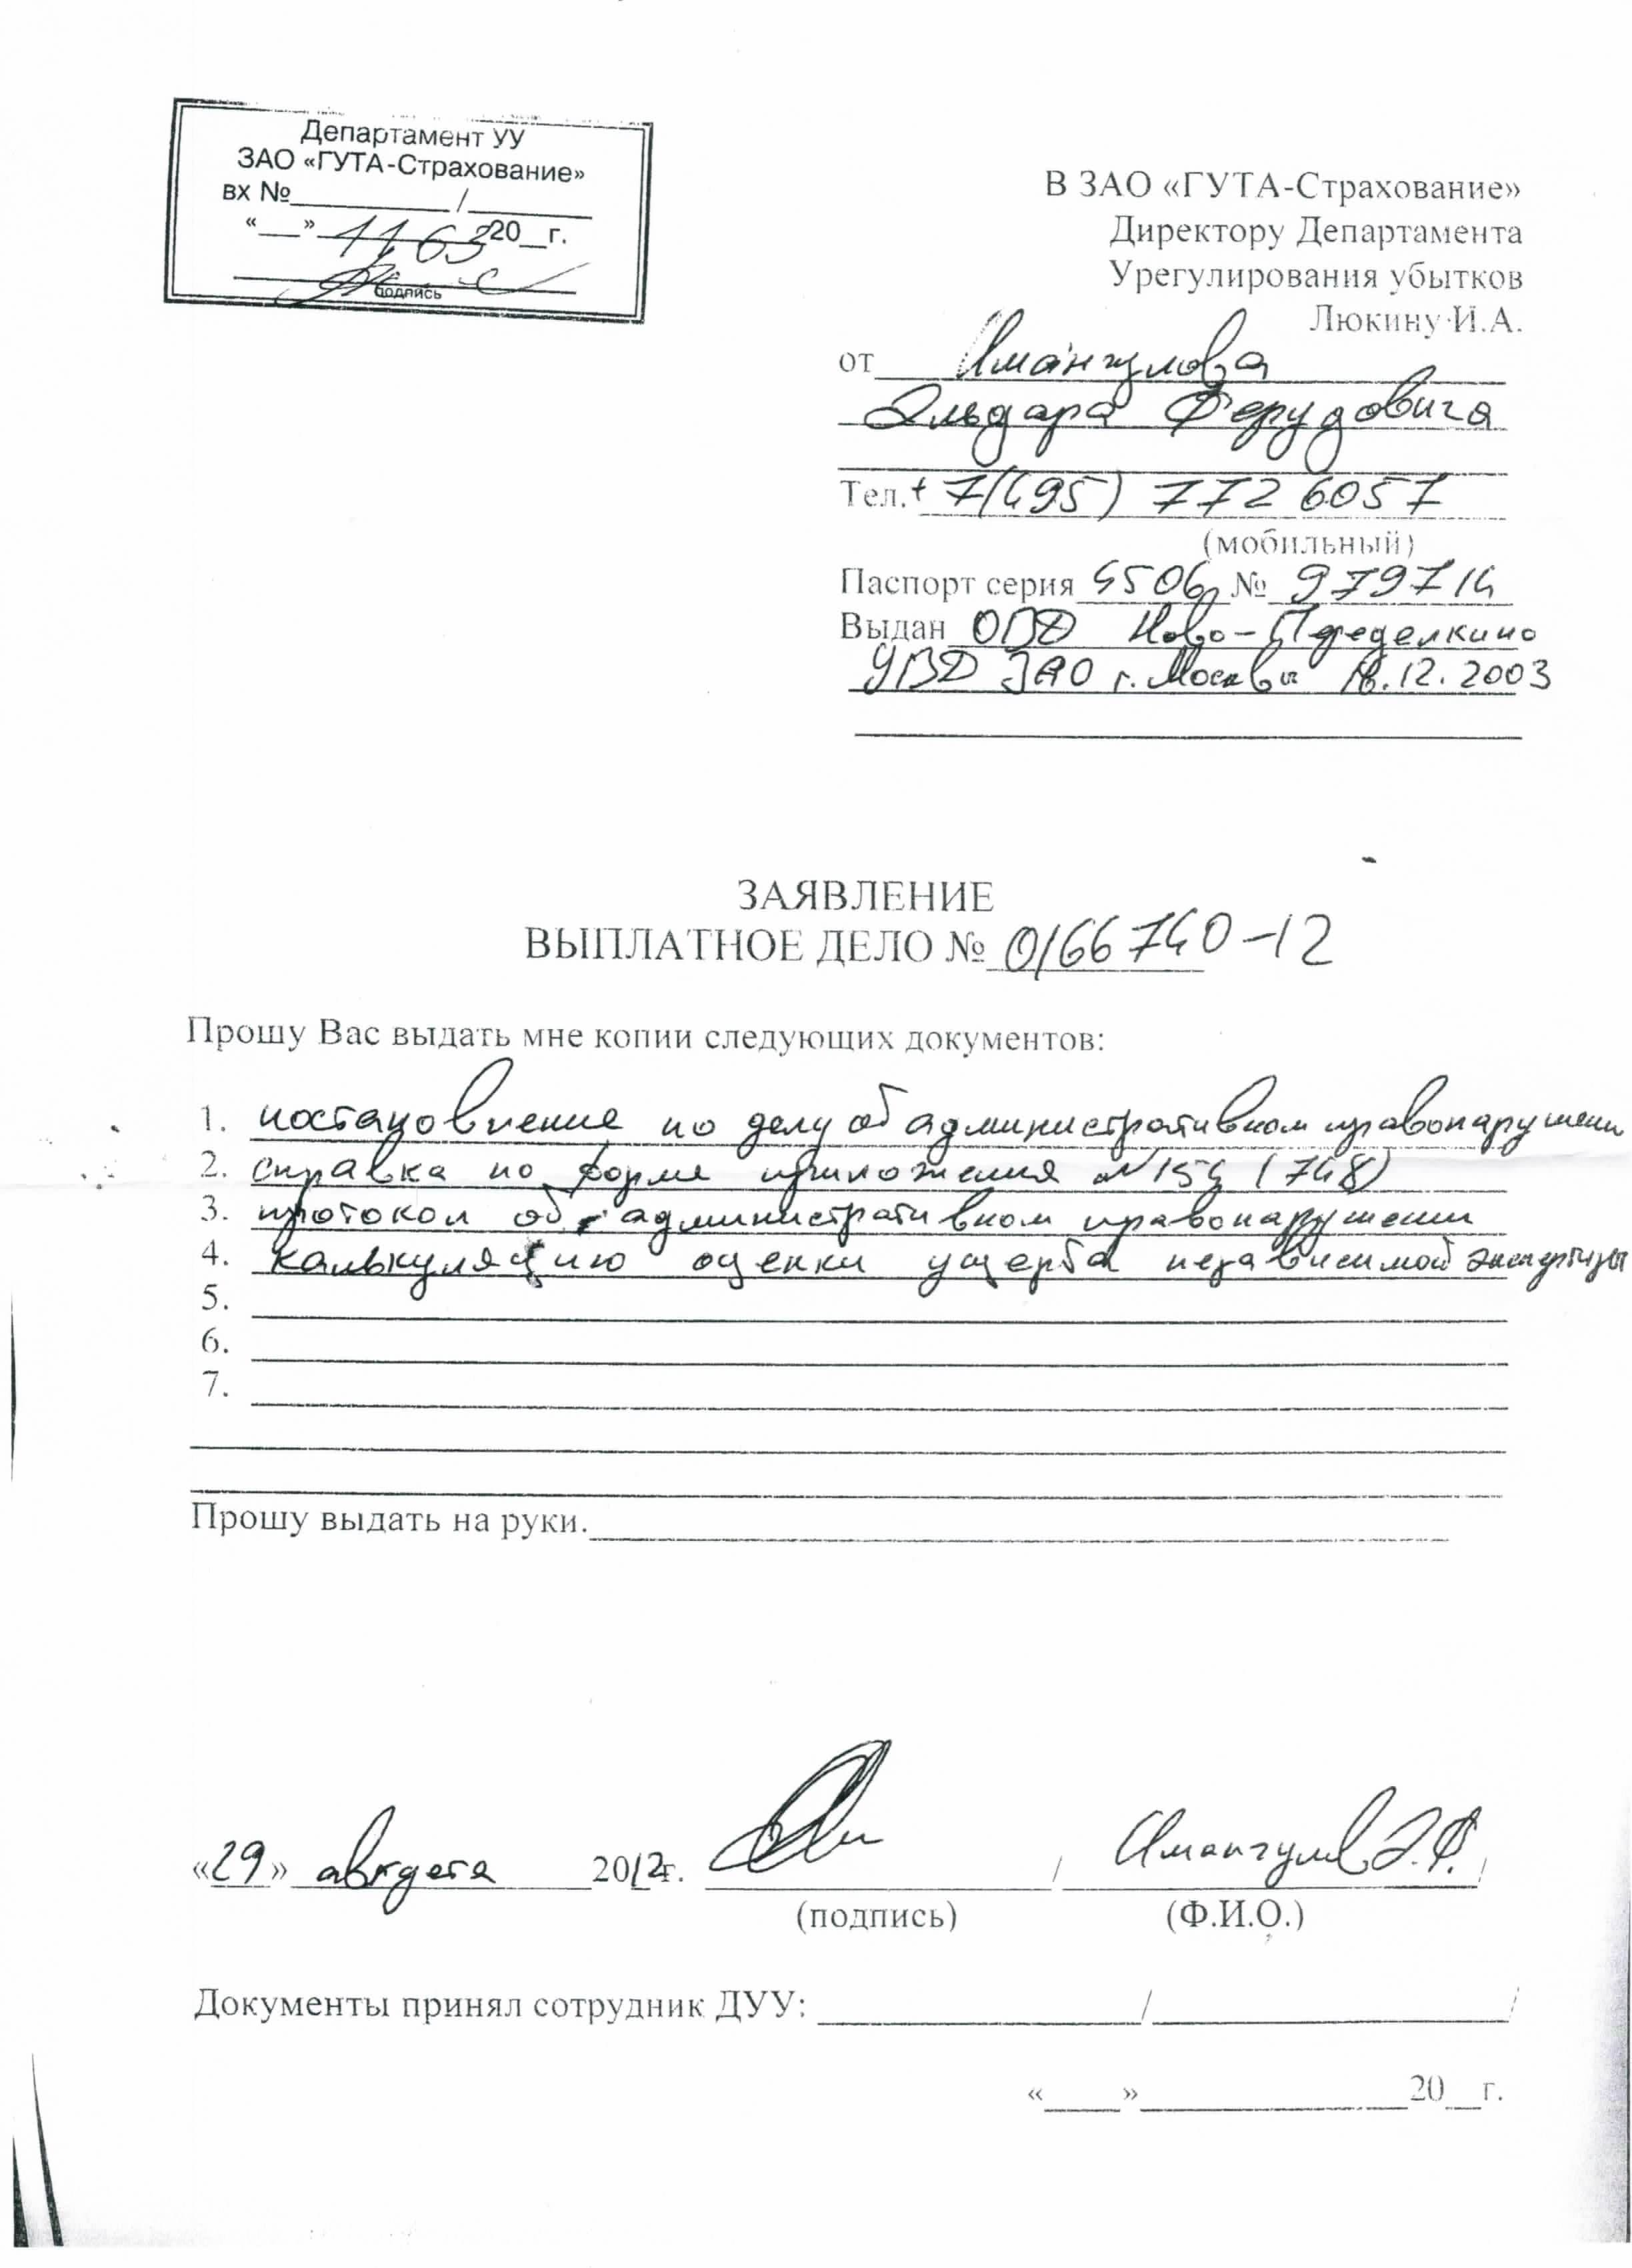 Департамент УУ
ЗАО «ГУТА-Страхование»
вх №__________/________
«___» 1163 20__г.
подпись
В ЗАО «ГУТА-Страхование»
Директору Департамента
Урегулирования убытков
Люкину И.А.
от Имангулова
Эльдара Ферудовича
Тел. +7(495) 772 6057
(мобильный)
Паспорт серия 4506 № 979714
Выдан ОВД Ново-Переделкино
УВД ЗАО г. Москвы 18.12.2003
ЗАЯВЛЕНИЕ
ВЫПЛАТНОЕ ДЕЛО № 0166740-12
Прошу Вас выдать мне копии следующих документов:
1. постановление по делу об административном правонарушении
2. справка по форме приложения №154 (748)
3. протокол об административном правонарушении
4. калькуляцию оценки ущерба независимой экспертизы
5.
6.
7.
Прошу выдать на руки.
«29» августа 2012г. / Имангулов Э.Ф. /
(подпись) (Ф.И.О.)
Документы принял сотрудник ДУУ: ____________/____________/
«____»____________20__г.